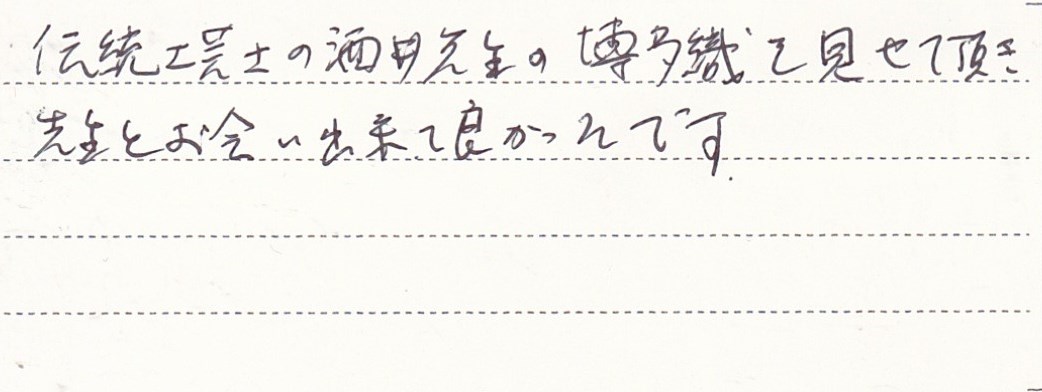 伝統工芸士の酒井先生の博多織を見せて頂き
先生とお会い出来て良かったです.